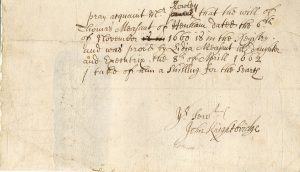 pray acquaint Mr Hawley that the will of
Thomas Measant of Henham dated the 6th
of November 1660 is in the Register
and was prov'd by Lidia Measant his daughter
and Exectrix the 8th of Aprill 1662
I take of him a shilling for the search
Yr Servt
John Knightbridge